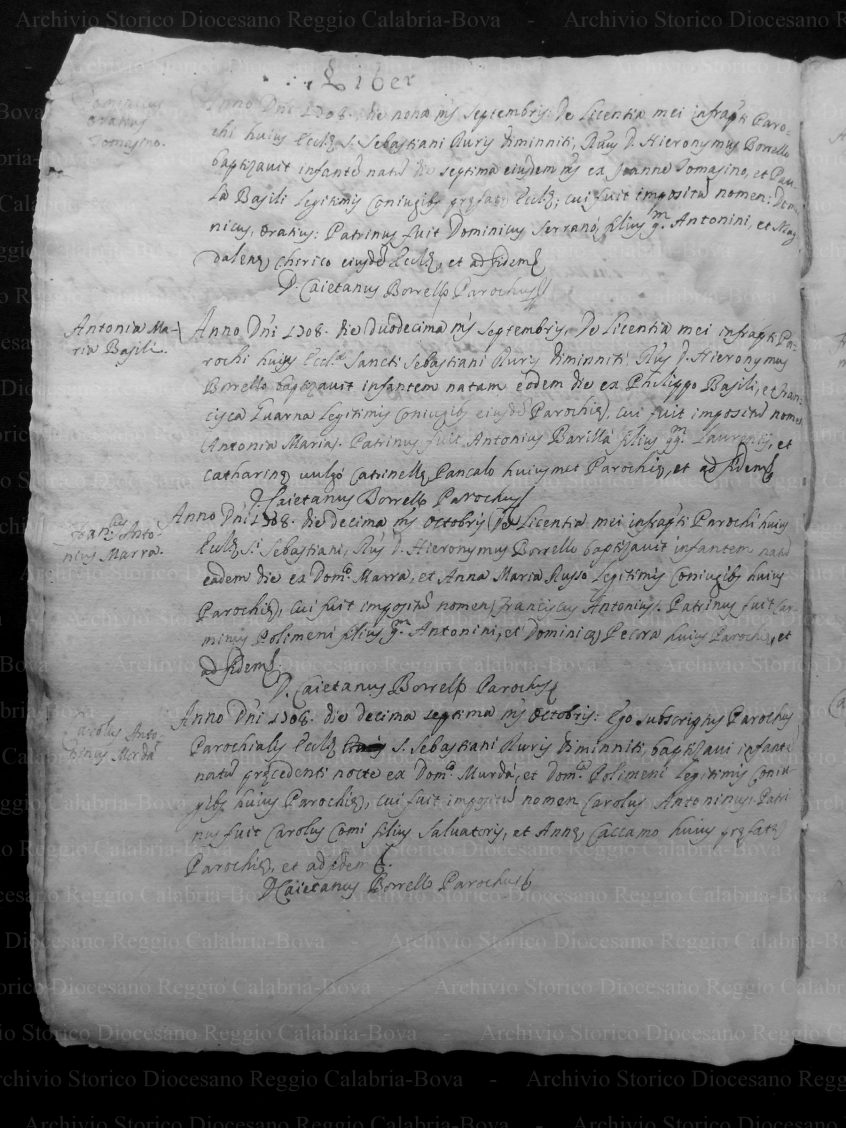 Liber
Dominicus
Oratius
Tomasino.
Anno Dni 1708. die nona ms septembris: De Licentia mei infrapti Paro-
chi huius Eccle S. Sebastiani Ruris Diminniti, Rdus D. Hieronymus Borrello
baptizavit infante natu die septima eiusdem ms ex Joanne Tomasino, et Pau-
la Basili legitimis coniugibs prefate Eccle; cui fuit impositu nomen: Domi-
nicus, Oratius: Patrinus fuit Dominicus Serranò, filius qm Antonini, et Mag
dalene Chirico eiusde Eccle, et ad fidem
D. Caietanus Borrello Parochus
Antonia Ma-
ria Basili.
Anno Dni 1708. die duodecima ms septembris. De Licentia mei infrapti Pa-
rochi huius Eccle Sancti Sebastiani Ruris Diminniti Rdus D. Hieronymus
Borrello baptizavit infantem natam eodem die ex Philippo Basili, et Fran-
cisca Luarna legitimis coniugibs eiusde Parochie, cui fuit impositu nomen
Antonia Maria. Patrinus fuit Antonius Barillà filius qm Laurentis, et
Catharine vulgò Catrinella Pancalo huiusmet Parochie, et ad fidem
D. Caietanus Borrello Parochus
Francus Anto-
nius Marra.
Anno Dni 1708. die decima ms Octobris De Licentia mei infrapti Parochi huius
Eccle S. Sebastiani, Rdus D. Hieronymus Borrello baptizavit infantem natu
eadem die ex Domco Marra, et Anna Maria Russo legitimis coniugibs huius
Parochie, cui fuit impositu nomen Franciscus Antonius. Patrinus fuit Car-
minus Polimeni filius qm Antonini, et Dominica Pecora huius Parochie, et
ad fidem
D. Caietanus Borrello Parochus
Carolus Anto-
ninus Murdà
Anno Dni 1708. die decima septima ms Octobris: Ego subscriptus Parochus
Parochialis Eccle S. Sebastiani Ruris Diminniti, baptizavi infante
natu precedenti nocte ex Domco Murdà, et Domca Polimeni legitimis coniu-
gibs huius Parochie, cui fuit impositu nomen Carolus, Antoninus. Patri
nus fuit Carolus Comi filius Salvatoris, et Anne Caccamo huius prefate
Parochie, et ad fidem
D. Caietanus Borrello Parochus